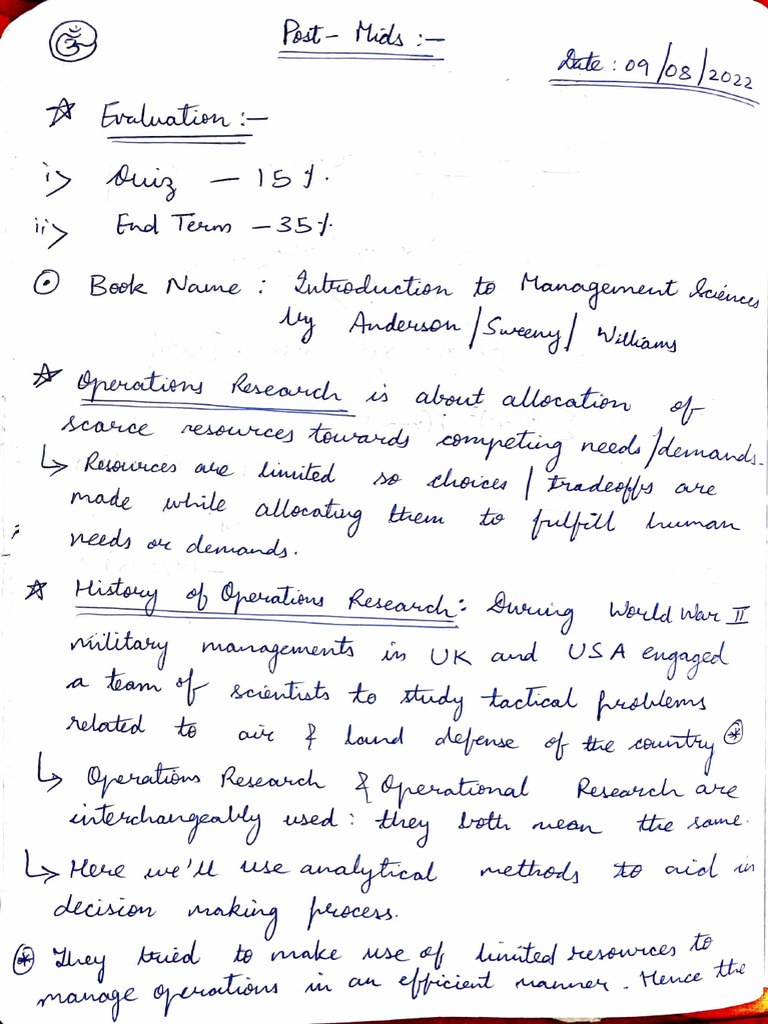 ॐ
Post - Mids :-
Date : 09/08/2022
☆ Evaluation :-
i> Quiz - 15 %.
ii> End Term - 35 %.
⊙ Book Name : Introduction to Management Sciences
by Anderson / Sweeny / Williams
☆ Operations Research is about allocation of
scarce resources towards competing needs/demands.
↳ Resources are limited so choices / tradeoffs are
made while allocating them to fulfill human
needs or demands.
☆ History of Operations Research : During World War II
military managements in UK and USA engaged
a team of scientists to study tactical problems
related to air & land defense of the country ⊛
↳ Operations Research & Operational Research are
interchangeably used : they both mean the same.
↳ Here we'll use analytical methods to aid in
decision making process.
⊛ They tried to make use of limited resources to
manage operations in an efficient manner. Hence the